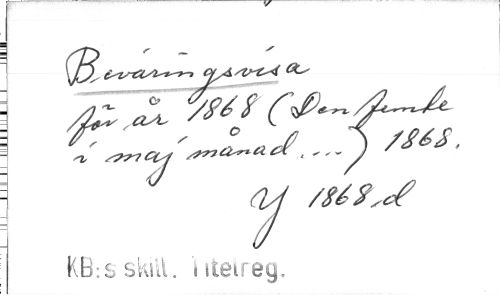 Beväringsvisa
för år 1868 (Den femte
i maj månad....) 1868.
Y 1868,d
KB:s skill. Titelreg.